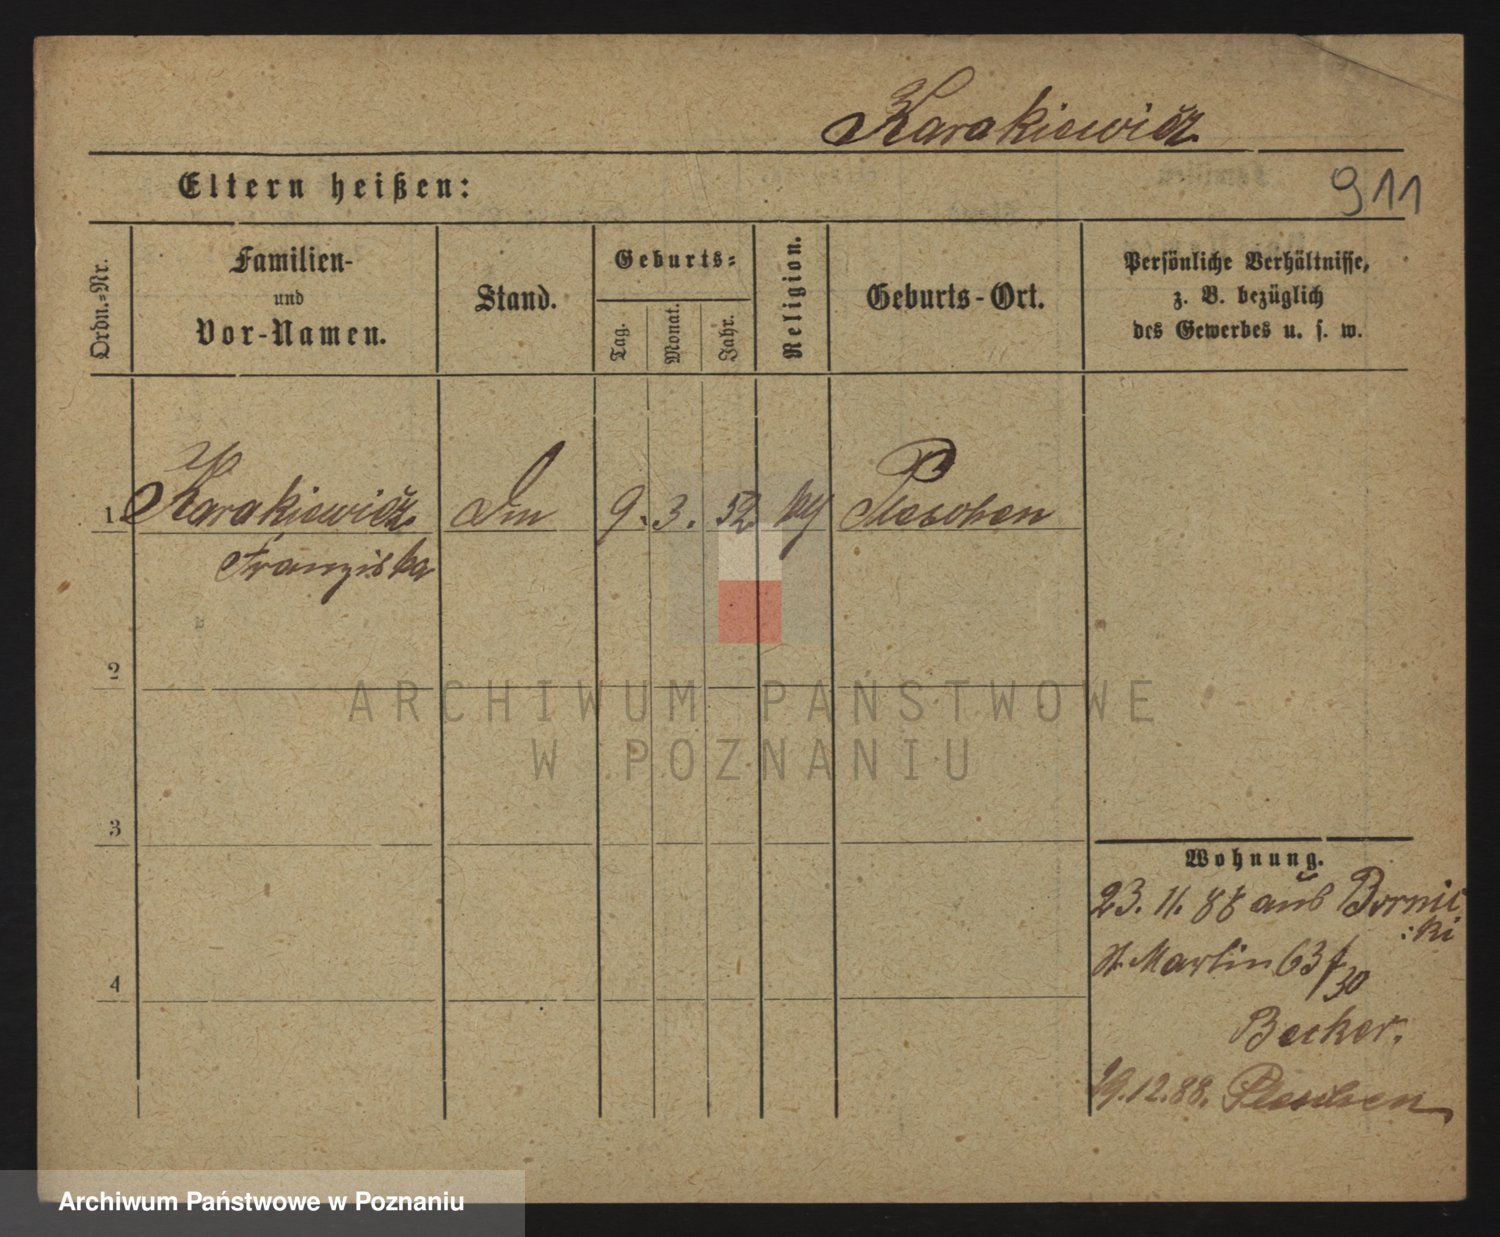 Karakiewicz
Eltern heißen:
911
Ordn.=Nr.
Familien-
und
Vor-Namen.
Stand.
Geburts=
Tag.
Monat.
Jahr.
Religion.
Geburts-Ort.
Persönliche Verhältnisse,
z. B. bezüglich
des Gewerbes u. s. w.
1 Karakiewicz 9. 3. 52 Pleschen
Franziska
2
3
4
Wohnung.
23. 11. 88 aus Bornic
:ki
St. Martin 63 f
30
Becker.
29.12.88. Pleschen
ARCHIWUM PAŃSTWOWE
W POZNANIU
Archiwum Państwowe w Poznaniu